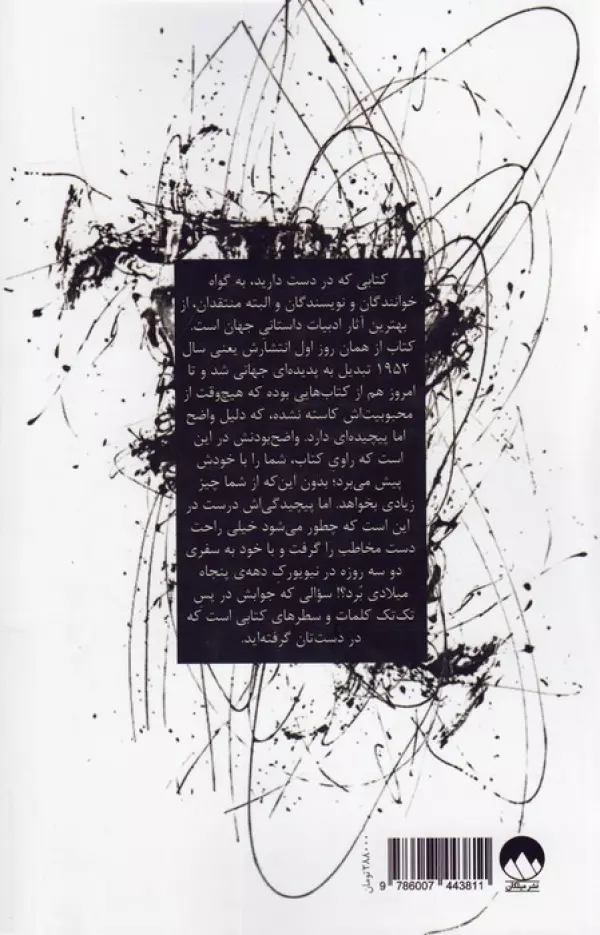 کتابی که در دست دارید، به گواه
خوانندگان و نویسندگان و البته منتقدان، از
بهترین آثار ادبیات داستانی جهان است.
کتاب از همان روز اول انتشارش یعنی سال
۱۹۵۲ تبدیل به پدیده‌ای جهانی شد و تا
امروز هم از کتاب‌هایی بوده که هیچ‌وقت از
محبوبیت‌اش کاسته نشده، که دلیل واضح
اما پیچیده‌ای دارد. واضح‌بودنش در این
است که راوی کتاب، شما را با خودش
پیش می‌برد؛ بدون این‌که از شما چیز
زیادی بخواهد. اما پیچیدگی‌اش درست در
این است که چطور می‌شود خیلی راحت
دست مخاطب را گرفت و با خود به سفری
دو سه روزه در نیویورک دهه‌ی پنجاه
میلادی بُرد؟! سؤالی که جوابش در پسِ
تک‌تک کلمات و سطرهای کتابی است که
در دست‌تان گرفته‌اید.
۳۸۸۰۰۰ تومان
9 786007 443811
نشر میلکان